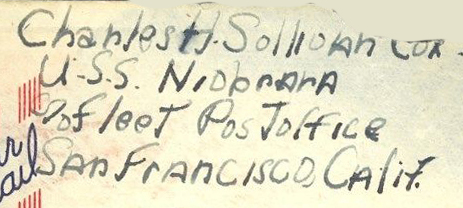 Charles H. Sollivan Cox
U.S.S. Niobrara
% Fleet Postoffice
San Francisco, Calif.
ail